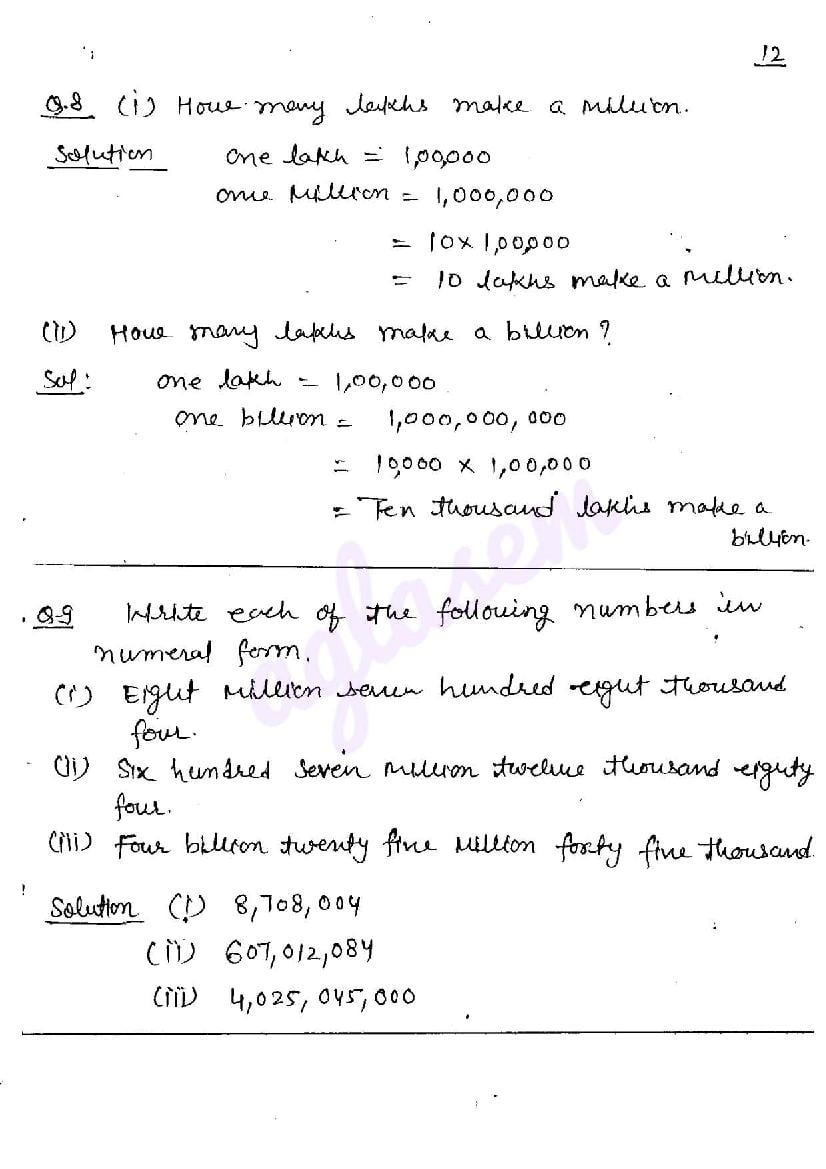 12
Q.8 (i) How many lakhs make a million.
Solution one lakh = 1,00,000
one million = 1,000,000
= 10 × 1,00,000
= 10 lakhs make a million.
(ii) How many lakhs make a billion?
Sol: one lakh = 1,00,000
one billion = 1,000,000,000
= 10,000 × 1,00,000
= Ten thousand lakhs make a
billion.
Q.9 Write each of the following numbers in
numeral form.
(i) Eight million seven hundred eight thousand
four.
(ii) Six hundred seven million twelve thousand eighty
four.
(iii) Four billion twenty five million forty five thousand.
Solution (i) 8,708,004
(ii) 607,012,084
(iii) 4,025,045,000
aglasem